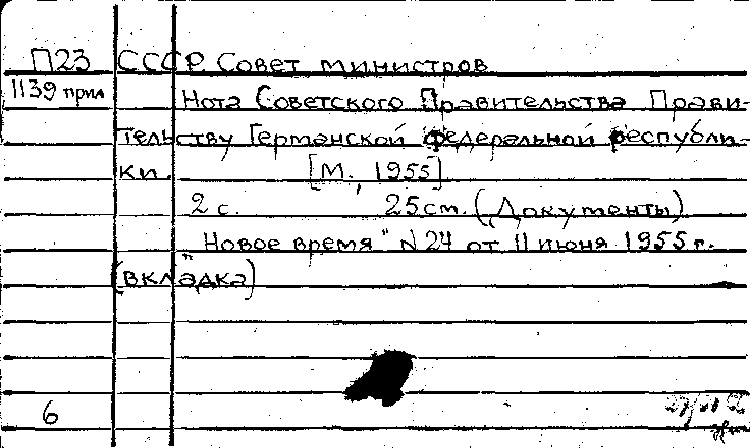 П23 СССР. Совет министров
1139 прил Нота Советского Правительства Прави-
тельству Германской Федеральной республи-
ки. [М., 1955]
2 с. 25 см. (Документы)
"Новое время" N 24 от 11 июня 1955 г.
(вкладка)
6